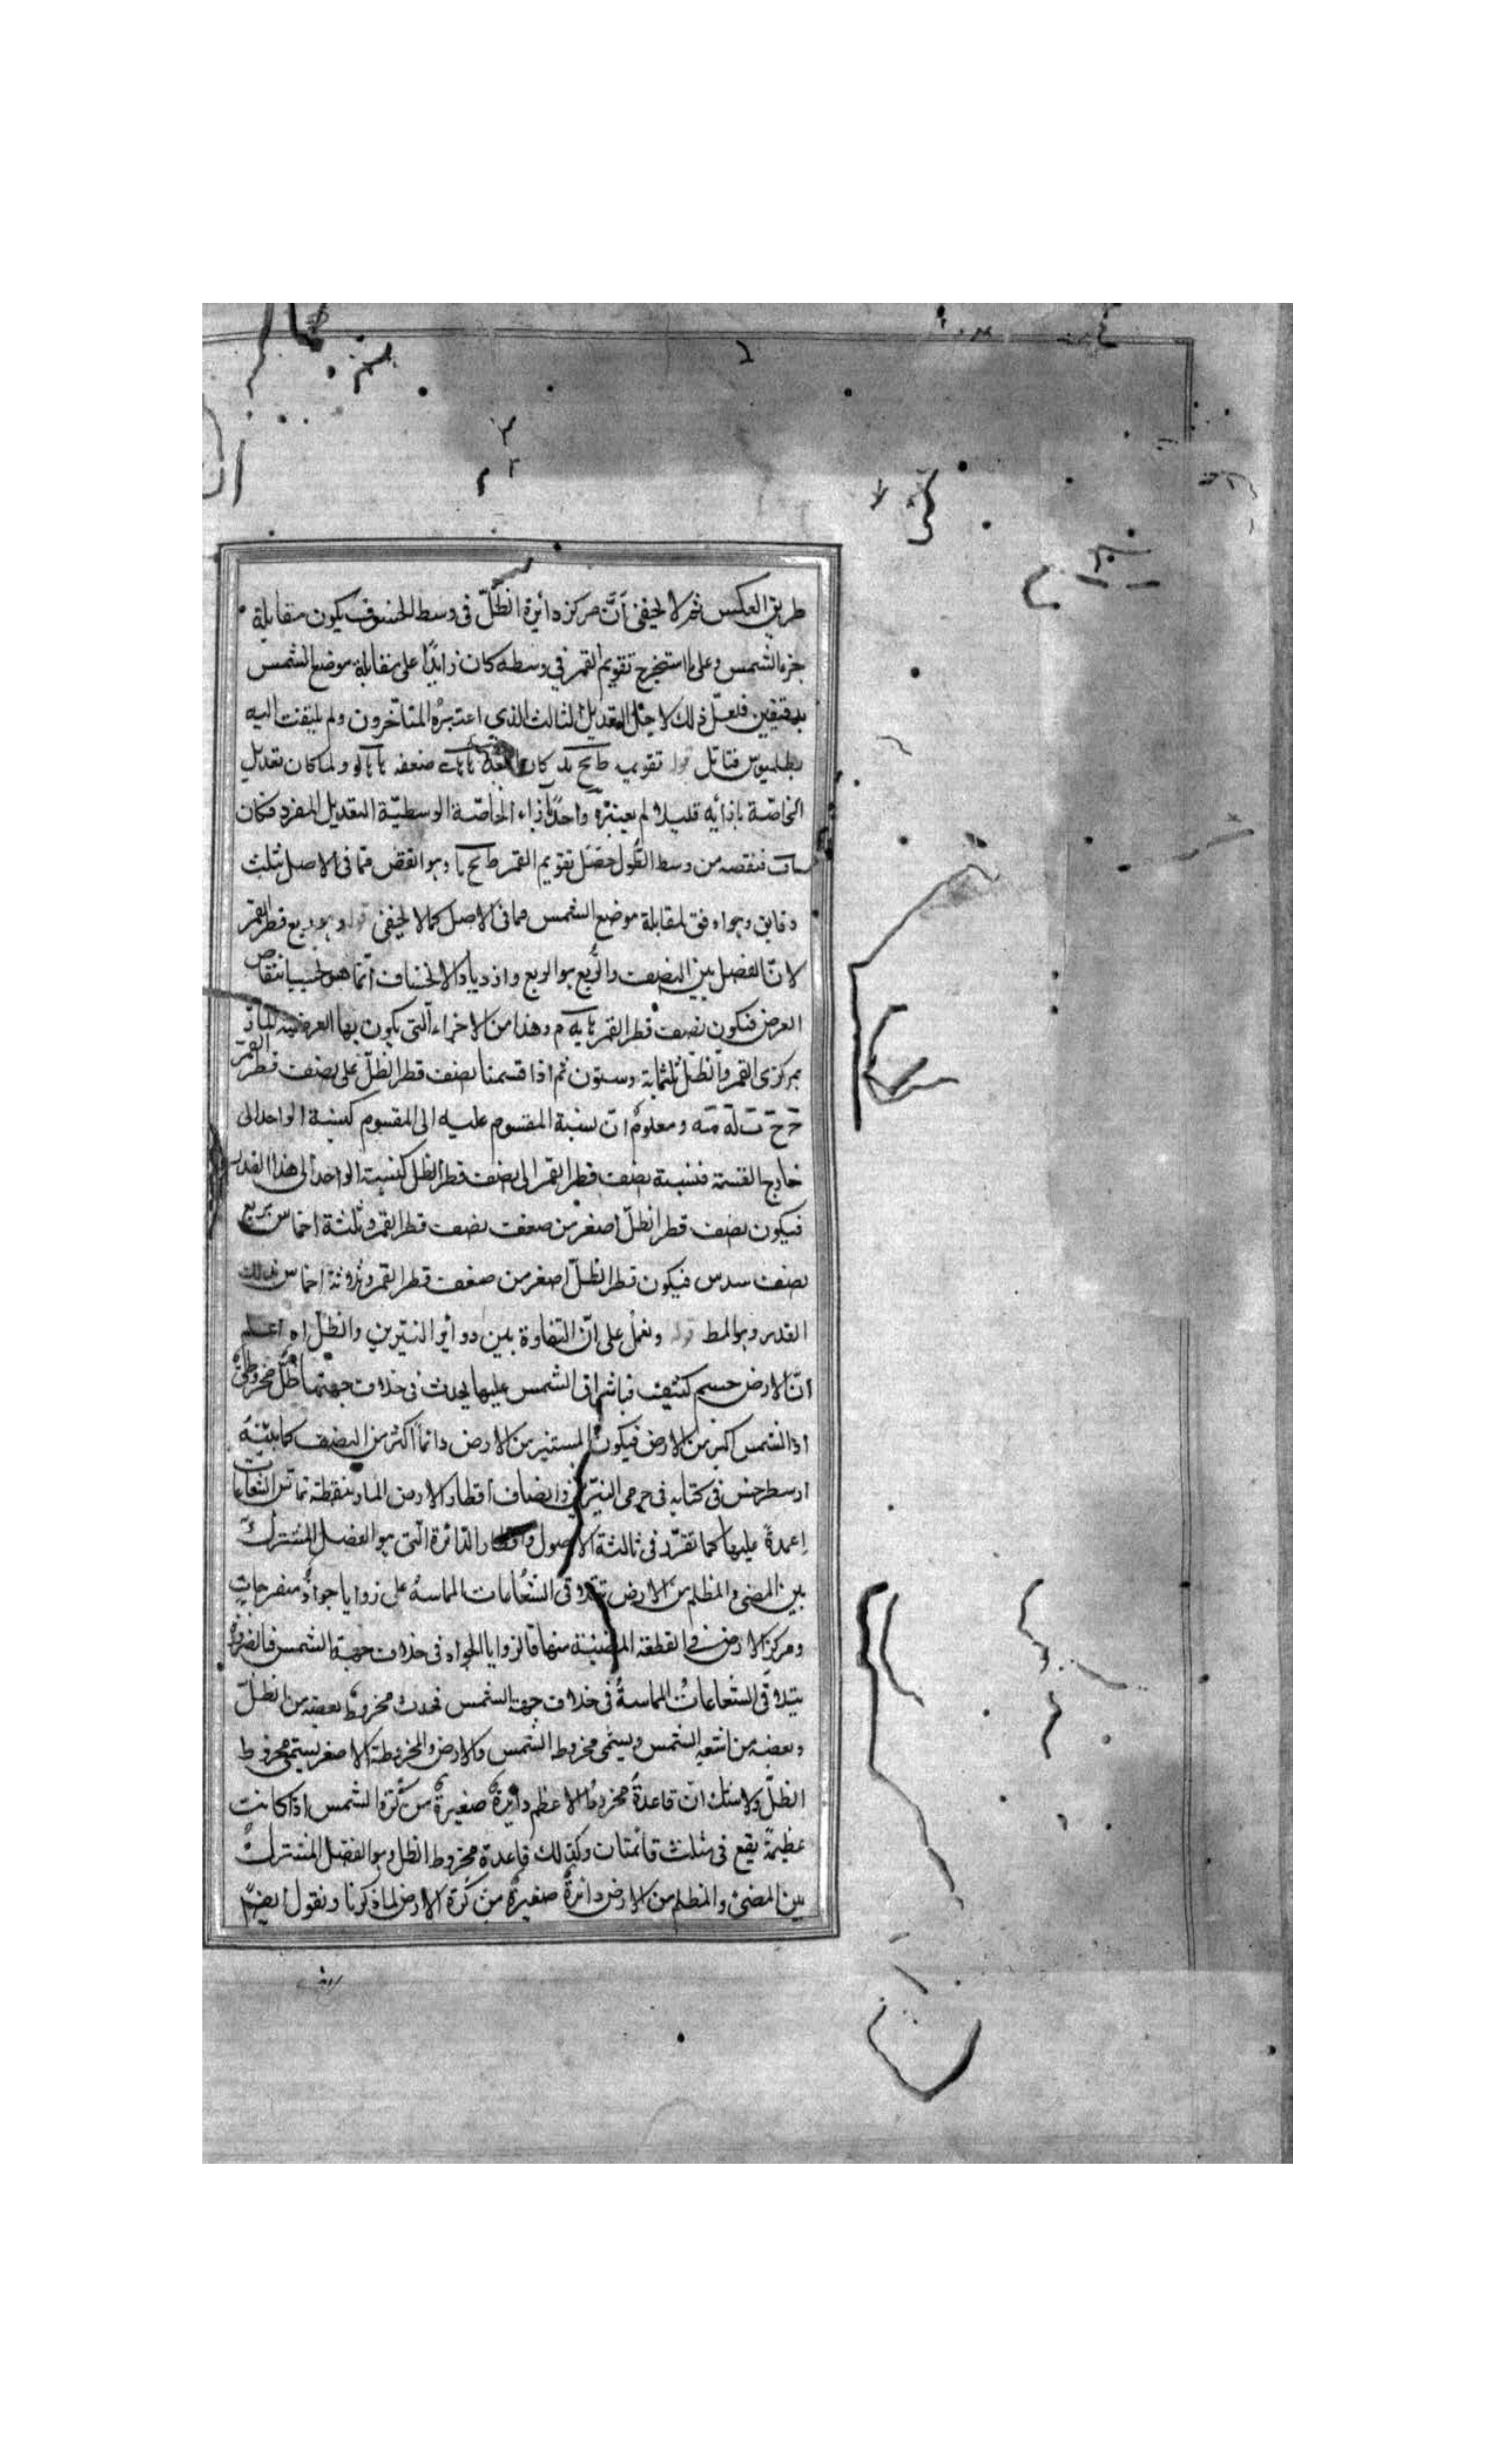 طريق العكس ثم لا يخفى أنّ مركز دائرة الظلّ في وسط الخسوف يكون مقابلة
جزء الشمس وعلى ما استخرج تقويم القمر في وسطه كان زايدًا على مقابلة موضع الشمس
بدقيقتين فلعلّ ذلك لاجل التعديل الثالث الذي اعتبره المتأخرون ولم يلتفت اليه
بطلميوس فتأمل قوله تقويمه ولما كان تعديل
الخاصّة بازائه قليلا لم يعتبره واخذ بازاء الخاصّة الوسطيّة التعديل المفرد فكان
فنقصه من وسط الطول حصل تقويم القمر وهو انقص مما في الاصل بثلث
دقايق وهو اوفق لمقابلة موضع الشمس مما في الاصل كما لا يخفى قوله وهو ربع قطر القمر
لانّ الفضل بين النصف والرّبع هو الربع وازدياد الانخساف انّما هو بحسب انتقاص
العرض فيكون نصف قطر القمر وهذا من الاجزاء التي يكون بها العرضية المارّة
بمركزي القمر والظلّ ثلثمائة وستون ثم اذا قسمنا نصف قطر الظلّ على نصف قطر القمر
ومعلوم انّ نسبة المقسوم عليه الى المقسوم كنسبة الواحد الى
خارج القسمة فنسبة نصف قطر القمر الى نصف قطر الظل كنسبة الواحد الى هذا القدر
فيكون نصف قطر الظلّ اصغر من ضعف نصف قطر القمر وثلثة اخماس بربع
نصف سدس فيكون قطر الظلّ اصغر من ضعف قطر القمر وثلاثة اخماس بذلك
القدر وهو المط قوله ونعمل على انّ التفاوة بين دوائر النيّرين والظلّ اه اعلم
انّ الارض جسم كثيف فباشراق الشمس عليها يحدث في خلاف جهتها ظلّ مخروطيّ
اذ الشمس اكبر من الارض فيكون المستنير من الارض دائماً اكثر من النصف كما بيّنه
ارسطرخس في كتابه في جرمي النيّرين وانصاف اقطار الارض المارة بنقطة تماسّ الشعاعات
اعمدةً عليها كما تقرّر في ثالثة الاصول واقطار الدّائرة التي هو الفصل المشترك
بين المضئ والمظلم من الارض تلاقى الشعاعات المماسة على زوايا حوادّ ومنفرجات
ومركز الارض في القطعة المضيئة منها فالزوايا الحواد في خلاف جهة الشمس فبالضرورة
يتلاقى الشعاعات المماسة في خلاف جهة الشمس فحدث مخروط بعضه من الظلّ
وبعضه من اشعة الشمس ويسمّى مخروط الشمس والارض والمخروطة الاصغر يسمى مخروط
الظلّ ولا شك انّ قاعدة مخروط الاعظم دايرة صغيرة من كرة الشمس اذا كانت
عظيمة يقع في مثلث قائمتان وكذلك قاعدة مخروط الظل وهو الفصل المشترك
بين المضئ والمظلم من الارض دائرة صغيرة من كرة الارض لما ذكرنا ونقول ايضًا